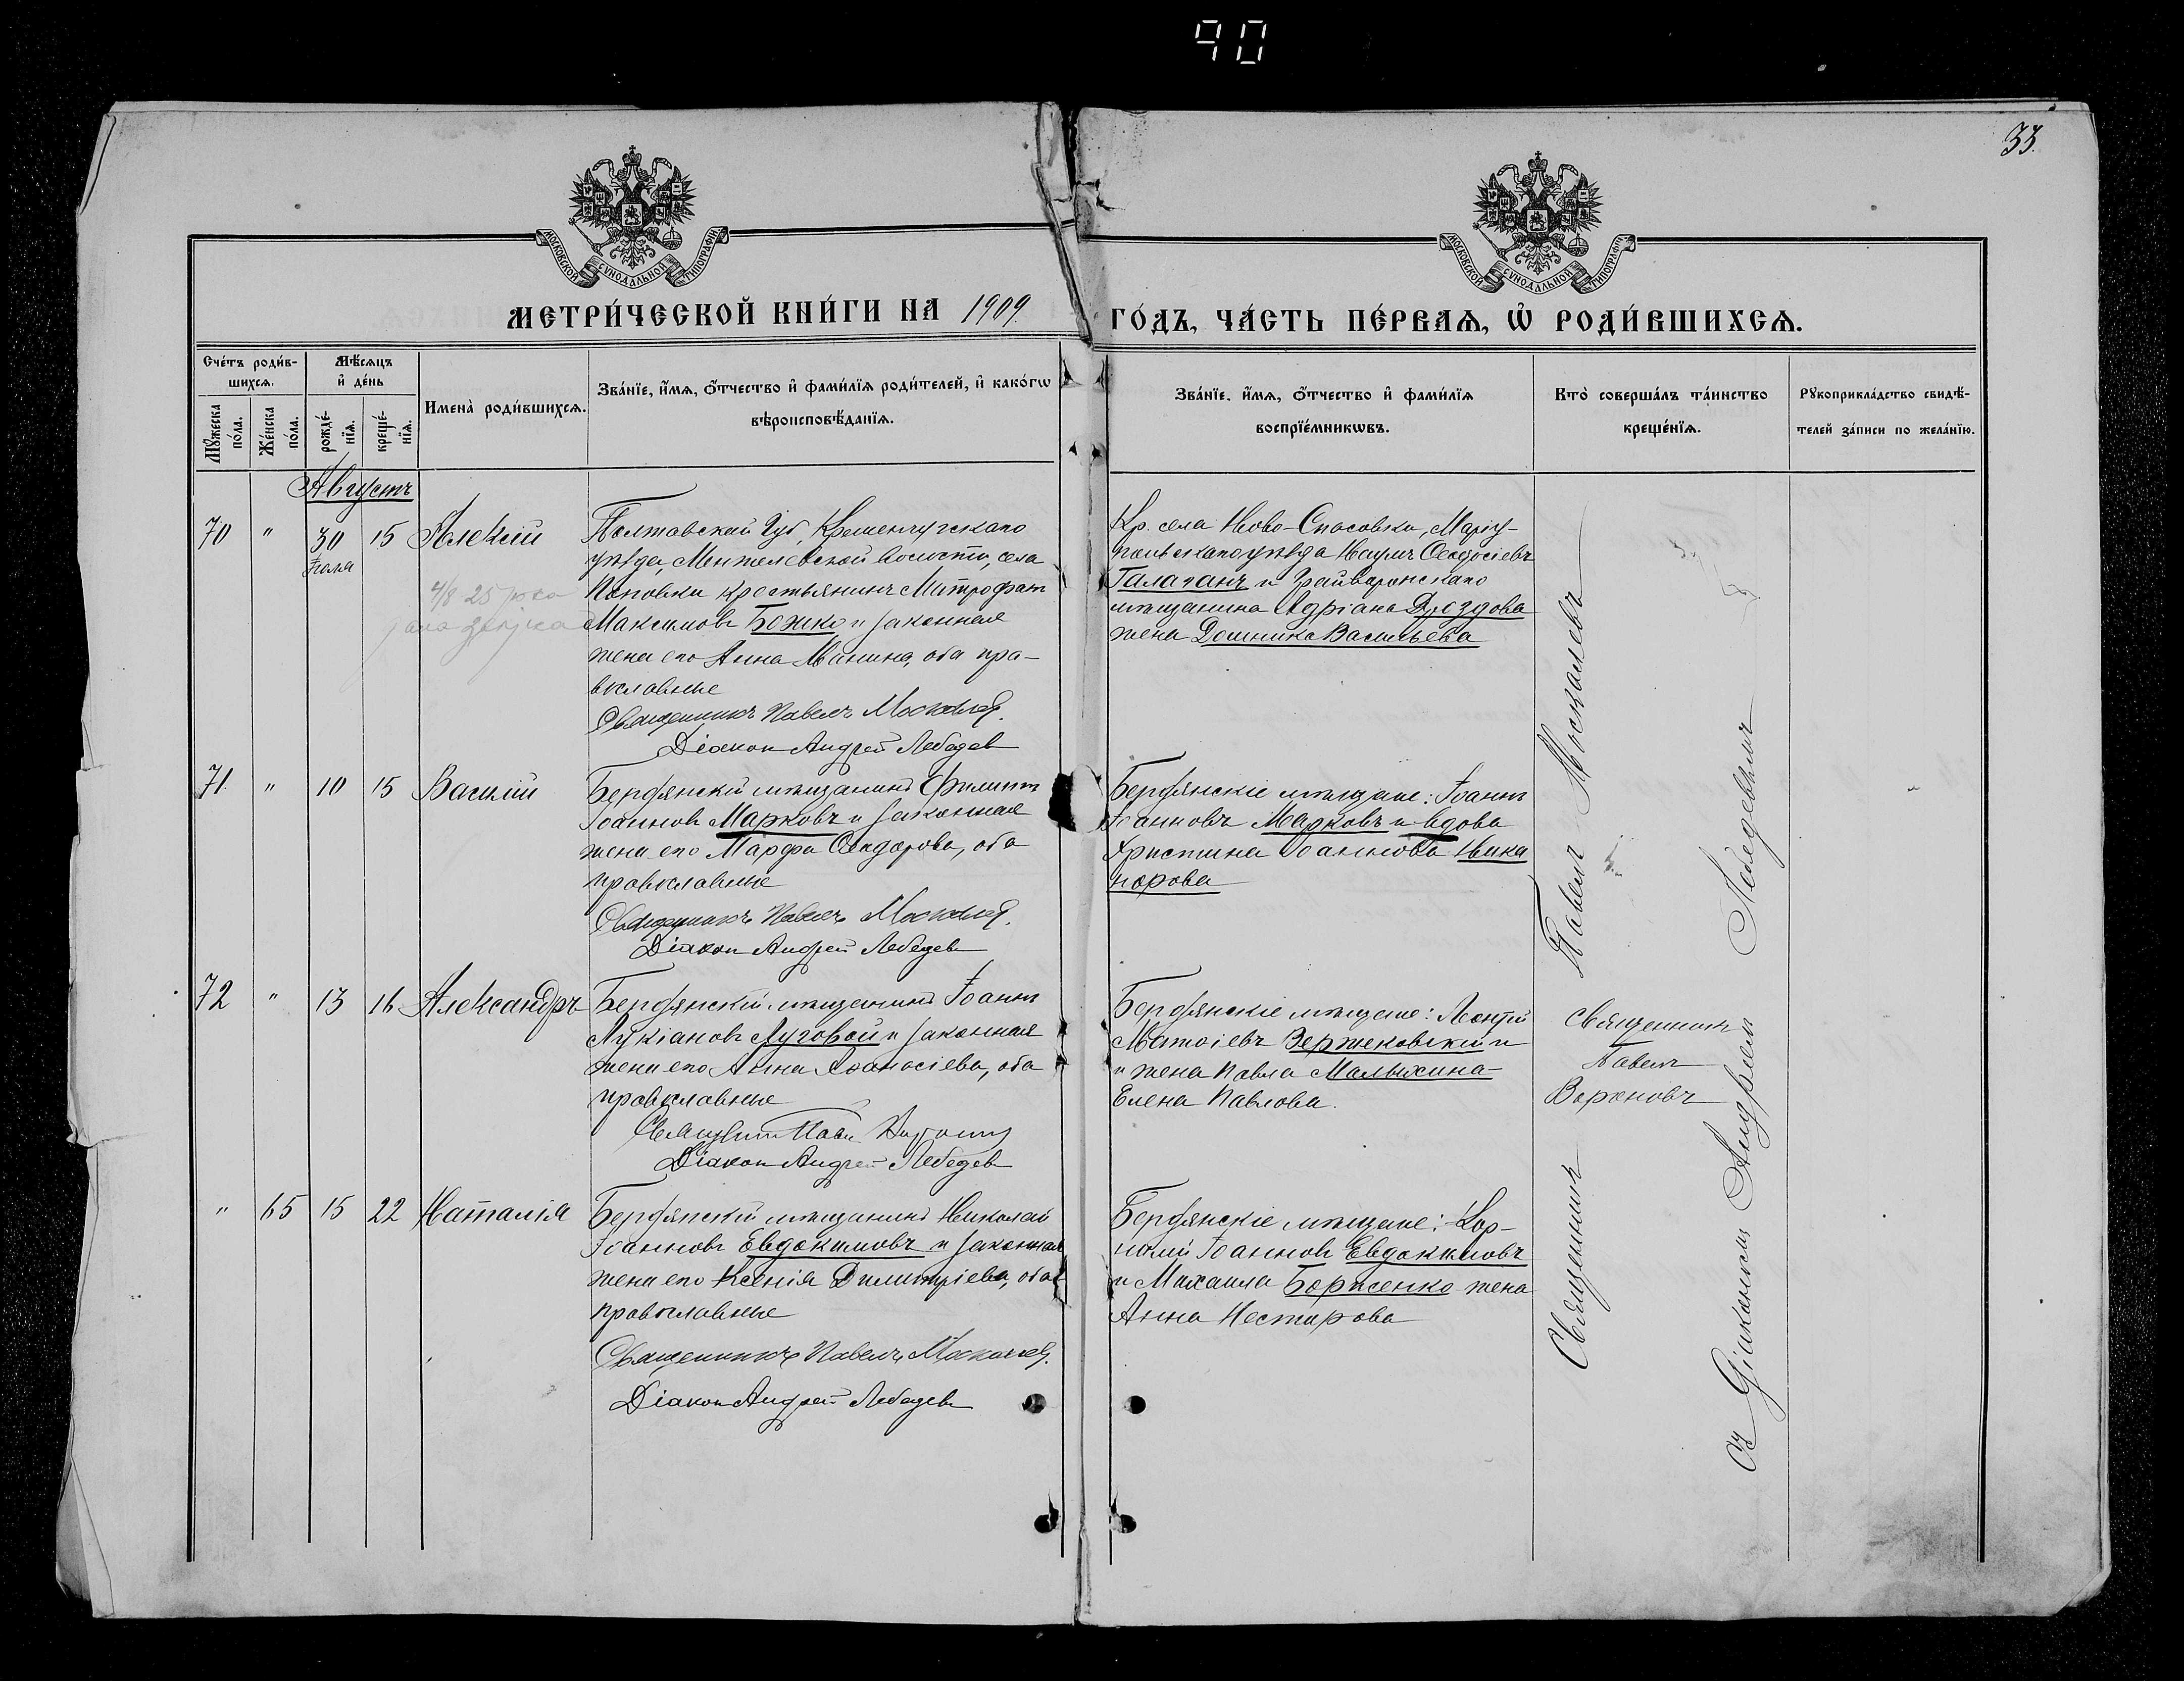 90
33.
МОСКОВСКОЙ СѴНОДАЛЬНОЙ ТИПОГРАФІИ
МОСКОВСКОЙ СѴНОДАЛЬНОЙ ТИПОГРАФІИ
МЕТРИ́ЧЕСКОЙ КНИ́ГИ НА 1909.
ГО́ДЪ, ЧА́СТЬ ПЕ́РВАѦ, Ѡ РОДИ́ВШИХСѦ.
Сче́тъ роди́в-
шихсѧ.
Мꙋжеска
по́ла.
Же́нска
по́ла.
Мѣ́сѧцъ
и҆ де́нь
рожде́-
нїѧ.
креще́-
нїѧ.
Имена̀ роди́вшихсѧ.
Зва́нїе, и҆́мѧ, ѻ҆́тчество и҆ фами́лїѧ роди́телей, и҆ како́гѡ
вѣроисповѣ́данїѧ.
Зва́нїе, и҆́мѧ, ѻ҆́тчество и҆ фами́лїѧ
воспрїе́мникѡвъ.
Кто̀ соверша́лъ та́инство
креще́нїѧ.
Рꙋкоприкла́дство свидѣ́-
телей за́писи по жела́нїю.
Августъ
70 " 30 15 Алексій
Іюля
4/8 25
Полтавской Губ, Кременчугскаго
уѣзда, волости, села
Поповки крестьянинъ Митрофан
Максимовъ Божко и законная
жена его Анна, оба пра-
вославные
Священникъ Павелъ Москалев.
Діакон Андрей Лебедев
Кр. села Ново-Спасовки, Маріу-
польскаго уѣзда Наумъ Ѳеодосіевъ
Галаганъ и Грайворонскаго
мѣщанина Адріана Дроздова
жена Васильева
71. " 10 15 Василій
Бердянскій мѣщанинъ Филиппъ
Іоанновъ Марковъ и законная
жена его Марфа Ѳеодорова, оба
православные
Священникъ Павелъ Москалев.
Діакон Андрей Лебедев
Бердянскіе мѣщане: Іоаннъ
Іоанновъ Марковъ и вдова
Христина Іоаннова Ника
норова
72 " 13 16 Александръ
Бердянскій мѣщанинъ Іоаннъ
Лукіановъ Луговой и законная
жена его Анна Аѳанасіева, оба
православные
Діакон Андрей Лебедев
Бердянскіе мѣщане: Леонтій
Матѳіевъ
и жена Павла Малыхина
Елена Павлова.
Священникъ
Павелъ
Вороновъ
" 65 15 22 Наталія
Бердянскій мѣщанинъ Николай
Іоанновъ Евдокимовъ и законная
жена его Ксенія Димитріева, оба
православные
Священникъ Павелъ Москалев.
Діакон Андрей Лебедев
Бердянскіе мѣщане: Кор-
нилій Іоанновъ Евдокимовъ
и Михаила Борисенко жена
Анна Нестирова
Священникъ Павелъ Москалевъ
съ Діакономъ Андреемъ Лебедевымъ